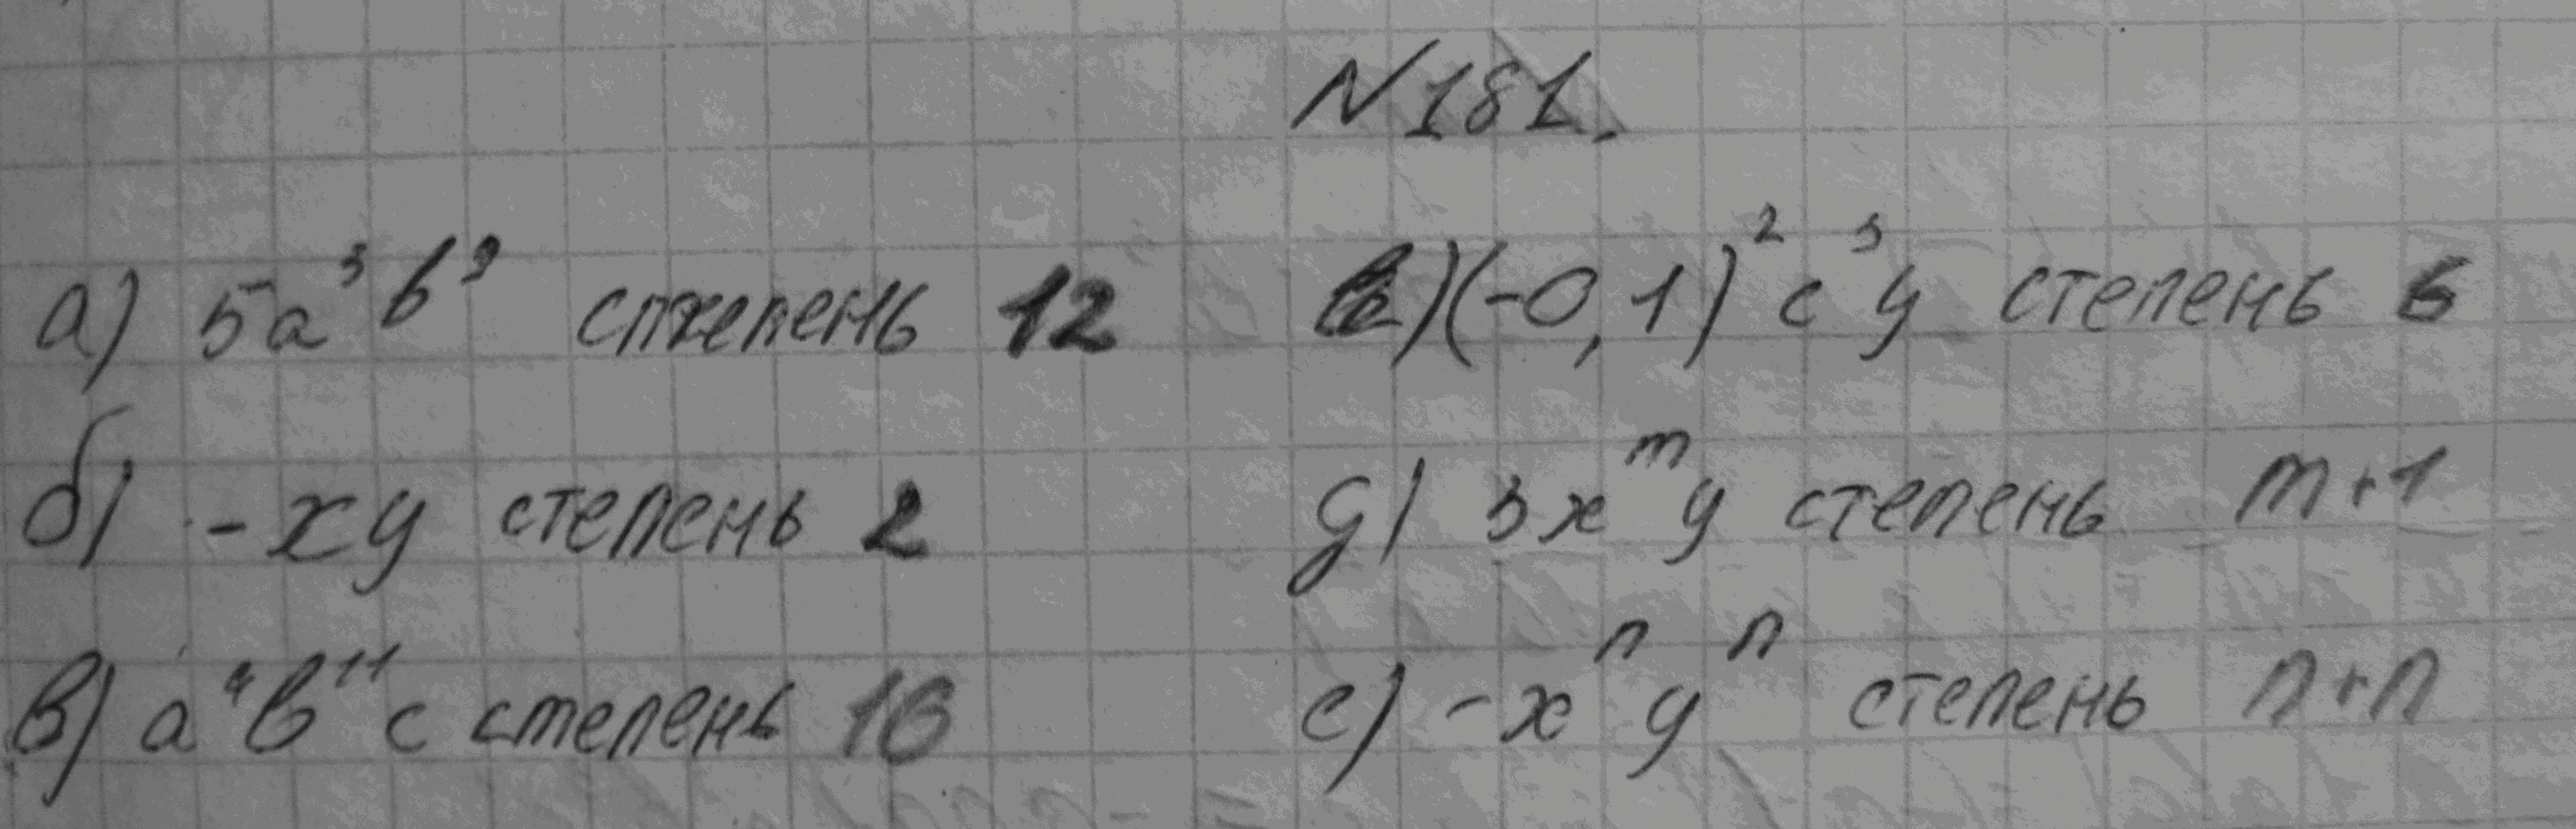 N181.
а) 5a³b⁹ степень 12
б) -xy степень 2
в) a⁴b¹¹c степень 16
г) (-0,1)²c⁵y степень 6
д) 3xᵐy степень m+1
е) -xⁿyⁿ степень n+n